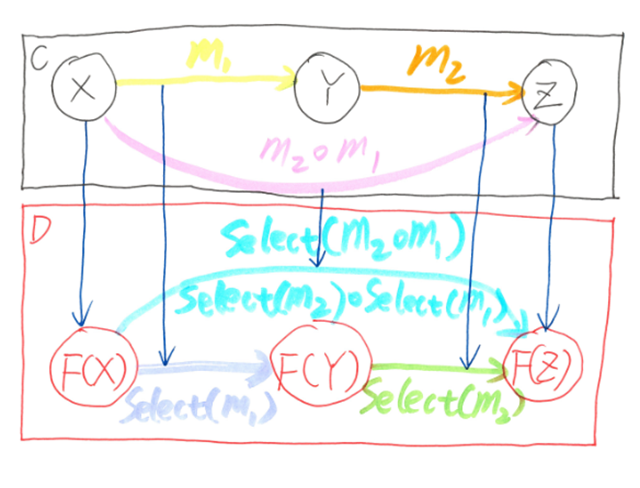 C
m₁
m₂
X
Y
Z
m₂∘m₁
D
Select(m₂∘m₁)
Select(m₂)∘Select(m₁)
F(X)
F(Y)
F(Z)
Select(m₁)
Select(m₂)